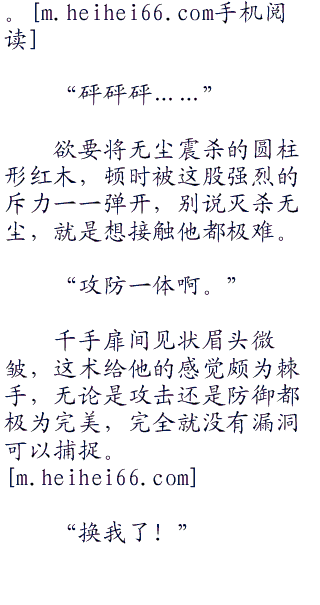 。[m.heihei66.com手机阅
读]
“砰砰砰……”
欲要将无尘震杀的圆柱
形红木，顿时被这股强烈的
斥力一一弹开，别说灭杀无
尘，就是想接触他都极难。
“攻防一体啊。”
千手扉间见状眉头微
皱，这术给他的感觉颇为棘
手，无论是攻击还是防御都
极为完美，完全就没有漏洞
可以捕捉。
[m.heihei66.com]
“换我了！”